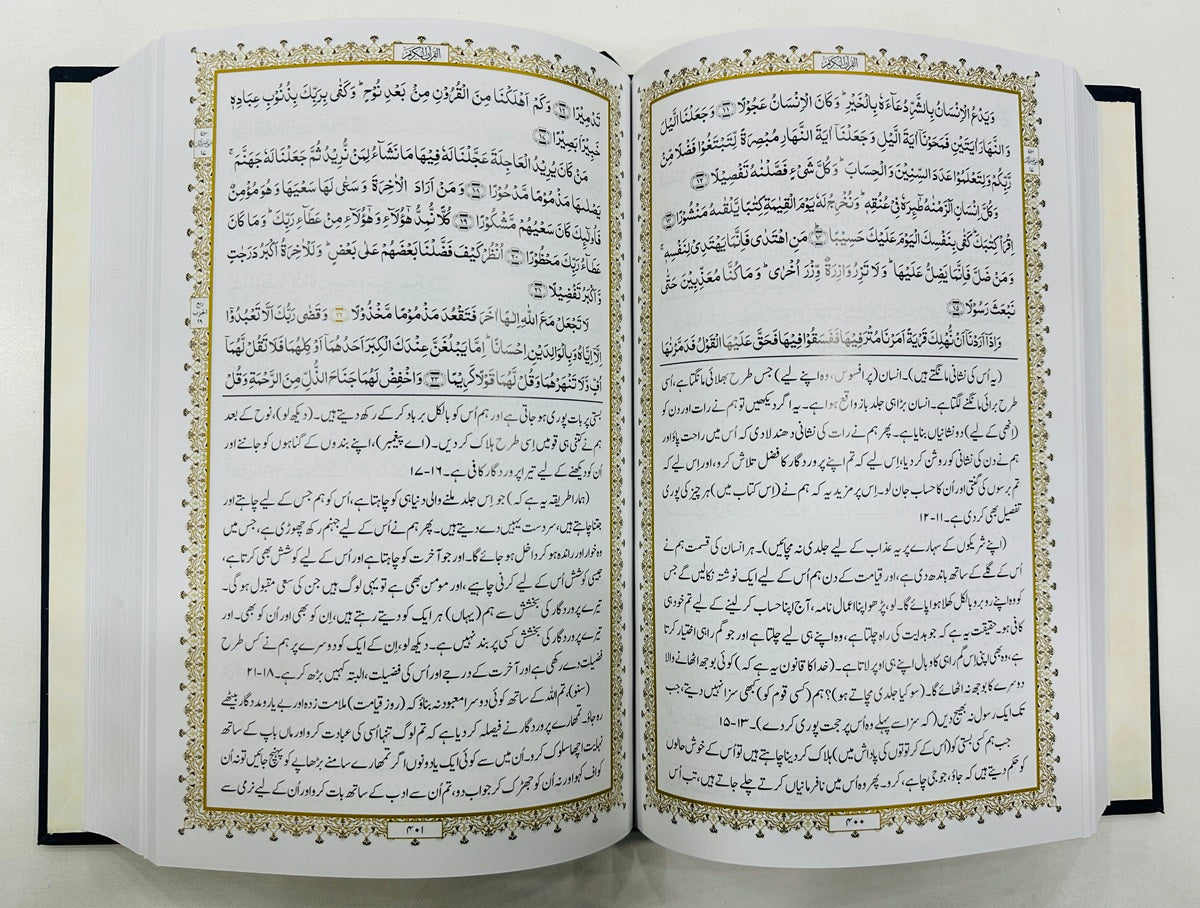 القرآن الكريم
وَيَدْعُ الْاِنْسَانُ بِالشَّرِّ دُعَآءَهٗ بِالْخَيْرِ ؕ وَكَانَ الْاِنْسَانُ عَجُوْلًا ﴿۱۱﴾ وَجَعَلْنَا الَّيْلَ
وَالنَّهَارَ اٰيَتَيْنِ فَمَحَوْنَاۤ اٰيَةَ الَّيْلِ وَجَعَلْنَاۤ اٰيَةَ النَّهَارِ مُبْصِرَةً لِّتَبْتَغُوْا فَضْلًا مِّنْ
رَّبِّكُمْ وَلِتَعْلَمُوْا عَدَدَ السِّنِيْنَ وَالْحِسَابَ ؕ وَكُلَّ شَيْءٍ فَصَّلْنٰهُ تَفْصِيْلًا ﴿۱۲﴾
وَكُلَّ اِنْسَانٍ اَلْزَمْنٰهُ طٰٓئِرَهٗ فِيْ عُنُقِهٖ ؕ وَنُخْرِجُ لَهٗ يَوْمَ الْقِيٰمَةِ كِتٰبًا يَّلْقٰىهُ مَنْشُوْرًا ﴿۱۳﴾
اِقْرَاْ كِتٰبَكَ ؕ كَفٰى بِنَفْسِكَ الْيَوْمَ عَلَيْكَ حَسِيْبًا ﴿۱۴﴾ مَنِ اهْتَدٰى فَاِنَّمَا يَهْتَدِيْ لِنَفْسِهٖ ۚ
وَمَنْ ضَلَّ فَاِنَّمَا يَضِلُّ عَلَيْهَا ؕ وَلَا تَزِرُ وَازِرَةٌ وِّزْرَ اُخْرٰى ؕ وَمَا كُنَّا مُعَذِّبِيْنَ حَتّٰى
نَبْعَثَ رَسُوْلًا ﴿۱۵﴾
وَاِذَاۤ اَرَدْنَاۤ اَنْ نُّهْلِكَ قَرْيَةً اَمَرْنَا مُتْرَفِيْهَا فَفَسَقُوْا فِيْهَا فَحَقَّ عَلَيْهَا الْقَوْلُ فَدَمَّرْنٰهَا
(یہ اُس کی نشانی مانگتے ہیں)۔ انسان (پر افسوس، وہ اپنے لیے) جس طرح بھلائی مانگتا ہے، اُسی
طرح برائی مانگنے لگتا ہے۔ انسان بڑا ہی جلد باز واقع ہوا ہے۔ یہ اگر دیکھیں تو ہم نے رات اور دن کو
(اِنھی کے لیے) دو نشانیاں بنایا ہے۔ پھر ہم نے رات کی نشانی دھندلا دی کہ اُس میں راحت پاؤ اور
ہم نے دن کی نشانی کو روشن کر دیا، اِس لیے کہ تم اپنے پروردگار کا فضل تلاش کرو، اور اِس لیے کہ
تم برسوں کی گنتی اور اُن کا حساب جان لو۔ اِس پر مزید یہ کہ ہم نے (اِس کتاب میں) ہر چیز کی پوری
تفصیل بھی کر دی ہے۔ ۱۱-۱۲
(اپنے شریکوں کے سہارے پر یہ عذاب کے لیے جلدی نہ مچائیں)۔ ہر انسان کی قسمت ہم نے
اُس کے گلے کے ساتھ باندھ دی ہے، اور قیامت کے دن ہم اُس کے لیے ایک نوشتہ نکالیں گے جس
کو وہ اپنے روبرو بالکل کھلا ہوا پائے گا۔ لو، پڑھو اپنا اعمال نامہ، آج اپنا حساب کر لینے کے لیے تم خود ہی
کافی ہو۔ حقیقت یہ ہے کہ جو ہدایت کی راہ چلتا ہے، وہ اپنے ہی لیے چلتا ہے اور جو گم راہی اختیار کرتا
ہے، وہ بھی اپنی اِس گم راہی کا وبال اپنے ہی اوپر لاتا ہے۔ (خدا کا قانون یہ ہے کہ) کوئی بوجھ اٹھانے والا
دوسرے کا بوجھ نہ اٹھائے گا۔ (سو کیا جلدی مچاتے ہو)؟ ہم (کسی قوم کو) کبھی سزا نہیں دیتے، جب
تک ایک رسول نہ بھیج دیں (کہ سزا سے پہلے وہ اُس پر حجت پوری کر دے)۔ ۱۳-۱۵
جب ہم کسی بستی کو (اُس کے کرتوتوں کی پاداش میں) ہلاک کر دینا چاہتے ہیں تو اُس کے خوش حالوں
کو حکم دیتے ہیں کہ جاؤ، جو جی چاہے، کرو۔ پھر وہ اُس میں نافرمانیاں کرتے چلے جاتے ہیں، تب اُس
۴۰۰
القرآن الكريم
تَدْمِيْرًا ﴿۱۶﴾ وَكَمْ اَهْلَكْنَا مِنَ الْقُرُوْنِ مِنْۢ بَعْدِ نُوْحٍ ؕ وَكَفٰى بِرَبِّكَ بِذُنُوْبِ عِبَادِهٖ
خَبِيْرًۢا بَصِيْرًا ﴿۱۷﴾
مَنْ كَانَ يُرِيْدُ الْعَاجِلَةَ عَجَّلْنَا لَهٗ فِيْهَا مَا نَشَآءُ لِمَنْ نُّرِيْدُ ثُمَّ جَعَلْنَا لَهٗ جَهَنَّمَ ۚ
يَصْلٰىهَا مَذْمُوْمًا مَّدْحُوْرًا ﴿۱۸﴾ وَمَنْ اَرَادَ الْاٰخِرَةَ وَسَعٰى لَهَا سَعْيَهَا وَهُوَ مُؤْمِنٌ
فَاُولٰٓئِكَ كَانَ سَعْيُهُمْ مَّشْكُوْرًا ﴿۱۹﴾ كُلًّا نُّمِدُّ هٰۤؤُلَآءِ وَهٰۤؤُلَآءِ مِنْ عَطَآءِ رَبِّكَ ؕ وَمَا كَانَ
عَطَآءُ رَبِّكَ مَحْظُوْرًا ﴿۲۰﴾ اُنْظُرْ كَيْفَ فَضَّلْنَا بَعْضَهُمْ عَلٰى بَعْضٍ ؕ وَلَلْاٰخِرَةُ اَكْبَرُ دَرَجٰتٍ
وَّاَكْبَرُ تَفْضِيْلًا ﴿۲۱﴾
لَا تَجْعَلْ مَعَ اللّٰهِ اِلٰهًا اٰخَرَ فَتَقْعُدَ مَذْمُوْمًا مَّخْذُوْلًا ﴿۲۲﴾ وَقَضٰى رَبُّكَ اَلَّا تَعْبُدُوْۤا
اِلَّاۤ اِيَّاهُ وَبِالْوَالِدَيْنِ اِحْسَانًا ؕ اِمَّا يَبْلُغَنَّ عِنْدَكَ الْكِبَرَ اَحَدُهُمَاۤ اَوْ كِلٰهُمَا فَلَا تَقُلْ لَّهُمَاۤ
اُفٍّ وَّلَا تَنْهَرْهُمَا وَقُلْ لَّهُمَا قَوْلًا كَرِيْمًا ﴿۲۳﴾ وَاخْفِضْ لَهُمَا جَنَاحَ الذُّلِّ مِنَ الرَّحْمَةِ وَقُلْ
بستی پر بات پوری ہو جاتی ہے اور ہم اُس کو بالکل برباد کر کے رکھ دیتے ہیں۔ (دیکھ لو)، نوح کے بعد
ہم نے کتنی ہی قومیں اِسی طرح ہلاک کر دیں۔ (اے پیغمبر)، اپنے بندوں کے گناہوں کو جاننے اور
اُن کو دیکھنے کے لیے تیرا پروردگار کافی ہے۔ ۱۶-۱۷
(ہمارا طریقہ یہ ہے کہ) جو اِس جلد ملنے والی دنیا ہی کو چاہتا ہے، اُس کو ہم جس کے لیے چاہتے اور
جتنا چاہتے ہیں، سردست یہیں دے دیتے ہیں۔ پھر ہم نے اُس کے لیے جہنم رکھ چھوڑی ہے، جس میں
وہ خوار اور راندہ ہو کر داخل ہو جائے گا۔ اور جو آخرت کو چاہتا ہے اور اُس کے لیے کوشش بھی کرتا ہے،
جیسی کوشش اُس کے لیے کرنی چاہیے، اور مومن بھی ہے تو یہی لوگ ہیں جن کی سعی مقبول ہو گی۔
تیرے پروردگار کی بخشش سے ہم (یہاں) ہر ایک کو دیتے رہتے ہیں، اِن کو بھی اور اُن کو بھی۔ اور
تیرے پروردگار کی بخشش کسی پر بند نہیں ہے۔ دیکھ لو، اِن کے ایک کو دوسرے پر ہم نے کس طرح
فضیلت دے رکھی ہے اور آخرت کے درجے اور اُس کی فضیلت، البتہ کہیں بڑھ کر ہے۔ ۱۸-۲۱
(سنو)، تم اللہ کے ساتھ کوئی دوسرا معبود نہ بناؤ کہ (روز قیامت) ملامت زدہ اور بے یار و مددگار بیٹھے
رہ جاؤ۔ تمھارے پروردگار نے فیصلہ کر دیا ہے کہ تم لوگ تنہا اُسی کی عبادت کرو اور ماں باپ کے ساتھ
نہایت اچھا سلوک کرو۔ اُن میں سے کوئی ایک یا دونوں اگر تمھارے سامنے بڑھاپے کو پہنچ جائیں تو نہ اُن
کو اف کہو اور نہ اُن کو جھڑک کر جواب دو، تم اُن سے ادب کے ساتھ بات کرو اور اُن کے لیے نرمی سے
۴۰۱